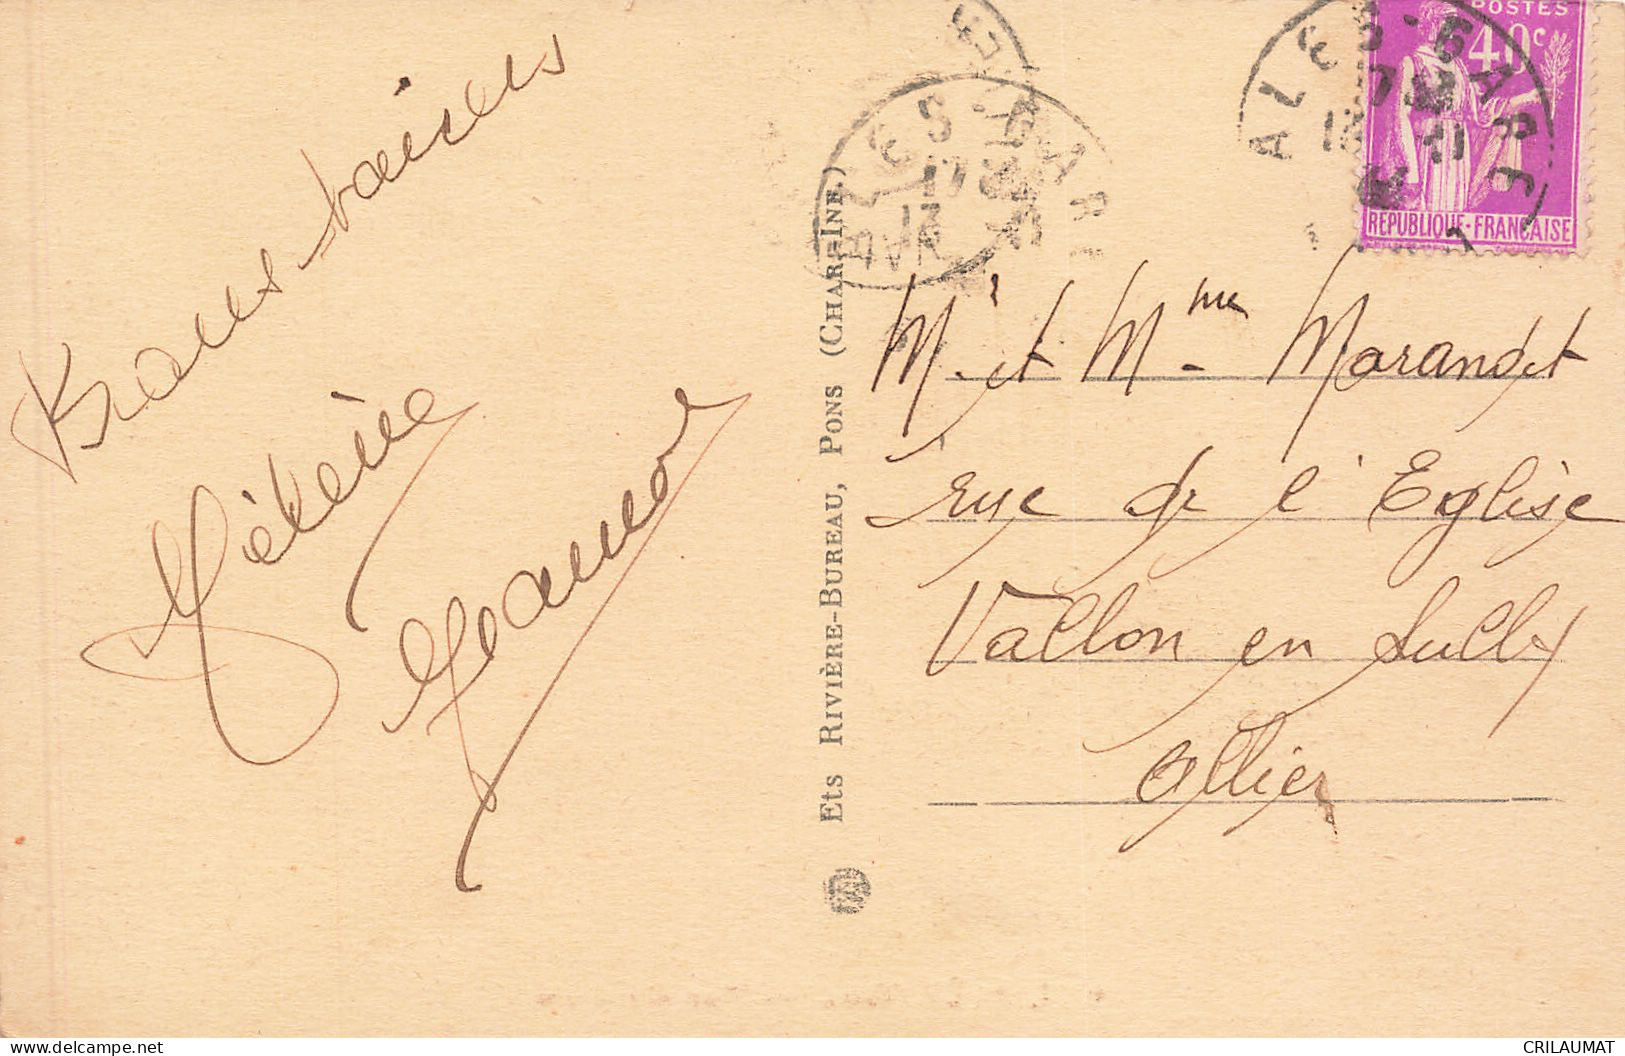 Bons baisers
Hélène
Jeanne
Ets RIVIÈRE-BUREAU, PONS (CHAR-INF.)
ALES-GARE
17
13
AVR
ALES-GARE
POSTES
40c
RÉPUBLIQUE-FRANÇAISE
Mr et Mme Marandet
rue de l'Eglise
Vallon en Sully
Allier
www.delcampe.net
CRILAUMAT